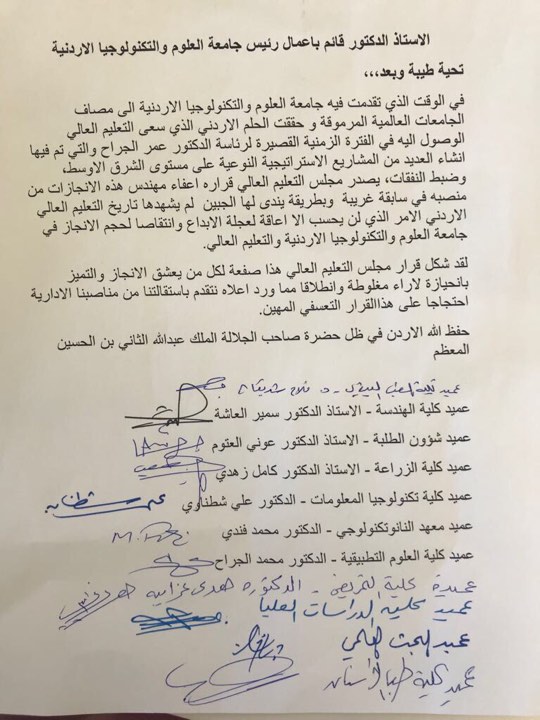 الاستاذ الدكتور قائم باعمال رئيس جامعة العلوم والتكنولوجيا الاردنية
تحية طيبة وبعد،،،
في الوقت الذي تقدمت فيه جامعة العلوم والتكنولوجيا الاردنية الى مصاف
الجامعات العالمية المرموقة و حققت الحلم الاردني الذي سعى التعليم العالي
الوصول اليه في الفترة الزمنية القصيرة لرئاسة الدكتور عمر الجراح والتي تم فيها
انشاء العديد من المشاريع الاستراتيجية النوعية على مستوى الشرق الاوسط،
وضبط النفقات، يصدر مجلس التعليم العالي قراره اعفاء مهندس هذه الانجازات من
منصبه في سابقة غريبة وبطريقة يندى لها الجبين لم يشهدها تاريخ التعليم العالي
الاردني الامر الذي لن يحسب الا اعاقة لعجلة الابداع وانتقاصا لحجم الانجاز في
جامعة العلوم والتكنولوجيا الاردنية والتعليم العالي.
لقد شكل قرار مجلس التعليم العالي هذا صفعة لكل من يعشق الانجاز والتميز
بانحيازة لاراء مغلوطة وانطلاقا مما ورد اعلاه نتقدم باستقالتنا من مناصبنا الادارية
احتجاجا على هذاالقرار التعسفي المهين.
حفظ الله الاردن في ظل حضرة صاحب الجلالة الملك عبدالله الثاني بن الحسين
المعظم
عميد كلية الطب البيطري - د
عميد كلية الهندسة - الاستاذ الدكتور سمير العاشة
عميد شؤون الطلبة - الاستاذ الدكتور عوني العتوم
عميد كلية الزراعة - الاستاذ الدكتور كامل زهدي
عميد كلية تكنولوجيا المعلومات - الدكتور علي شطناوي
عميد معهد النانوتكنولوجي - الدكتور محمد فندي
عميد كلية العلوم التطبيقية - الدكتور محمد الجراح
عميدة كلية التمريض - الدكتورة هدى غرايبه
عميد كلية الدراسات العليا
عميد البحث العلمي
عميد كلية طب الأسنان